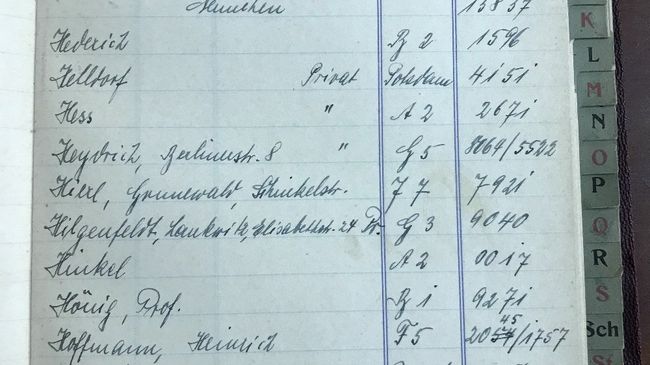 München 15857
Hederich B 2 1596
Helldorf Privat Potsdam 4151
Hess " A 2 2671
Heydrich, Berlinerstr. 8 " G 5 8064/5522
Hierl, Grunewald, Schinkelstr. J 7 7921
Hilgenfeldt, Lankwitz, Elisabethstr. 24 Pr. G 3 9040
Hinkel A 2 0017
König, Prof. B 1 9271
Hoffmann, Heinrich F 5 2054/1757
45
K
L
M
N
O
P
Q
R
S
Sch
St